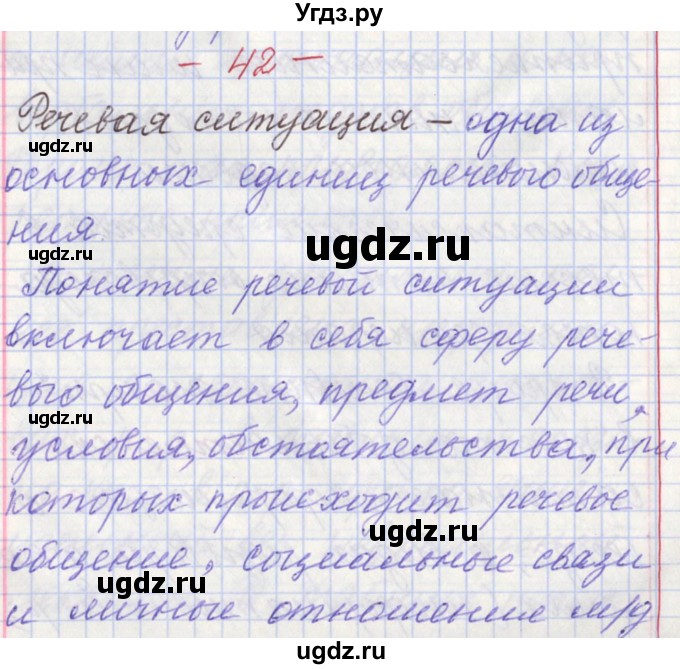 Угдз.ру
- 42 -
Речевая ситуация – одна из
основных единиц речевого обще-
ния.
Понятие речевой ситуации
включает в себя сферу рече-
вого общения, предмет речи,
условия, обстоятельства, при
которых происходит речевое
общение, социальные связи
и личные отношение м/д
ugdz.ru
ugdz.ru
ugdz.ru
ugdz.ru
ugdz.ru
ugdz.ru
ugdz.ru